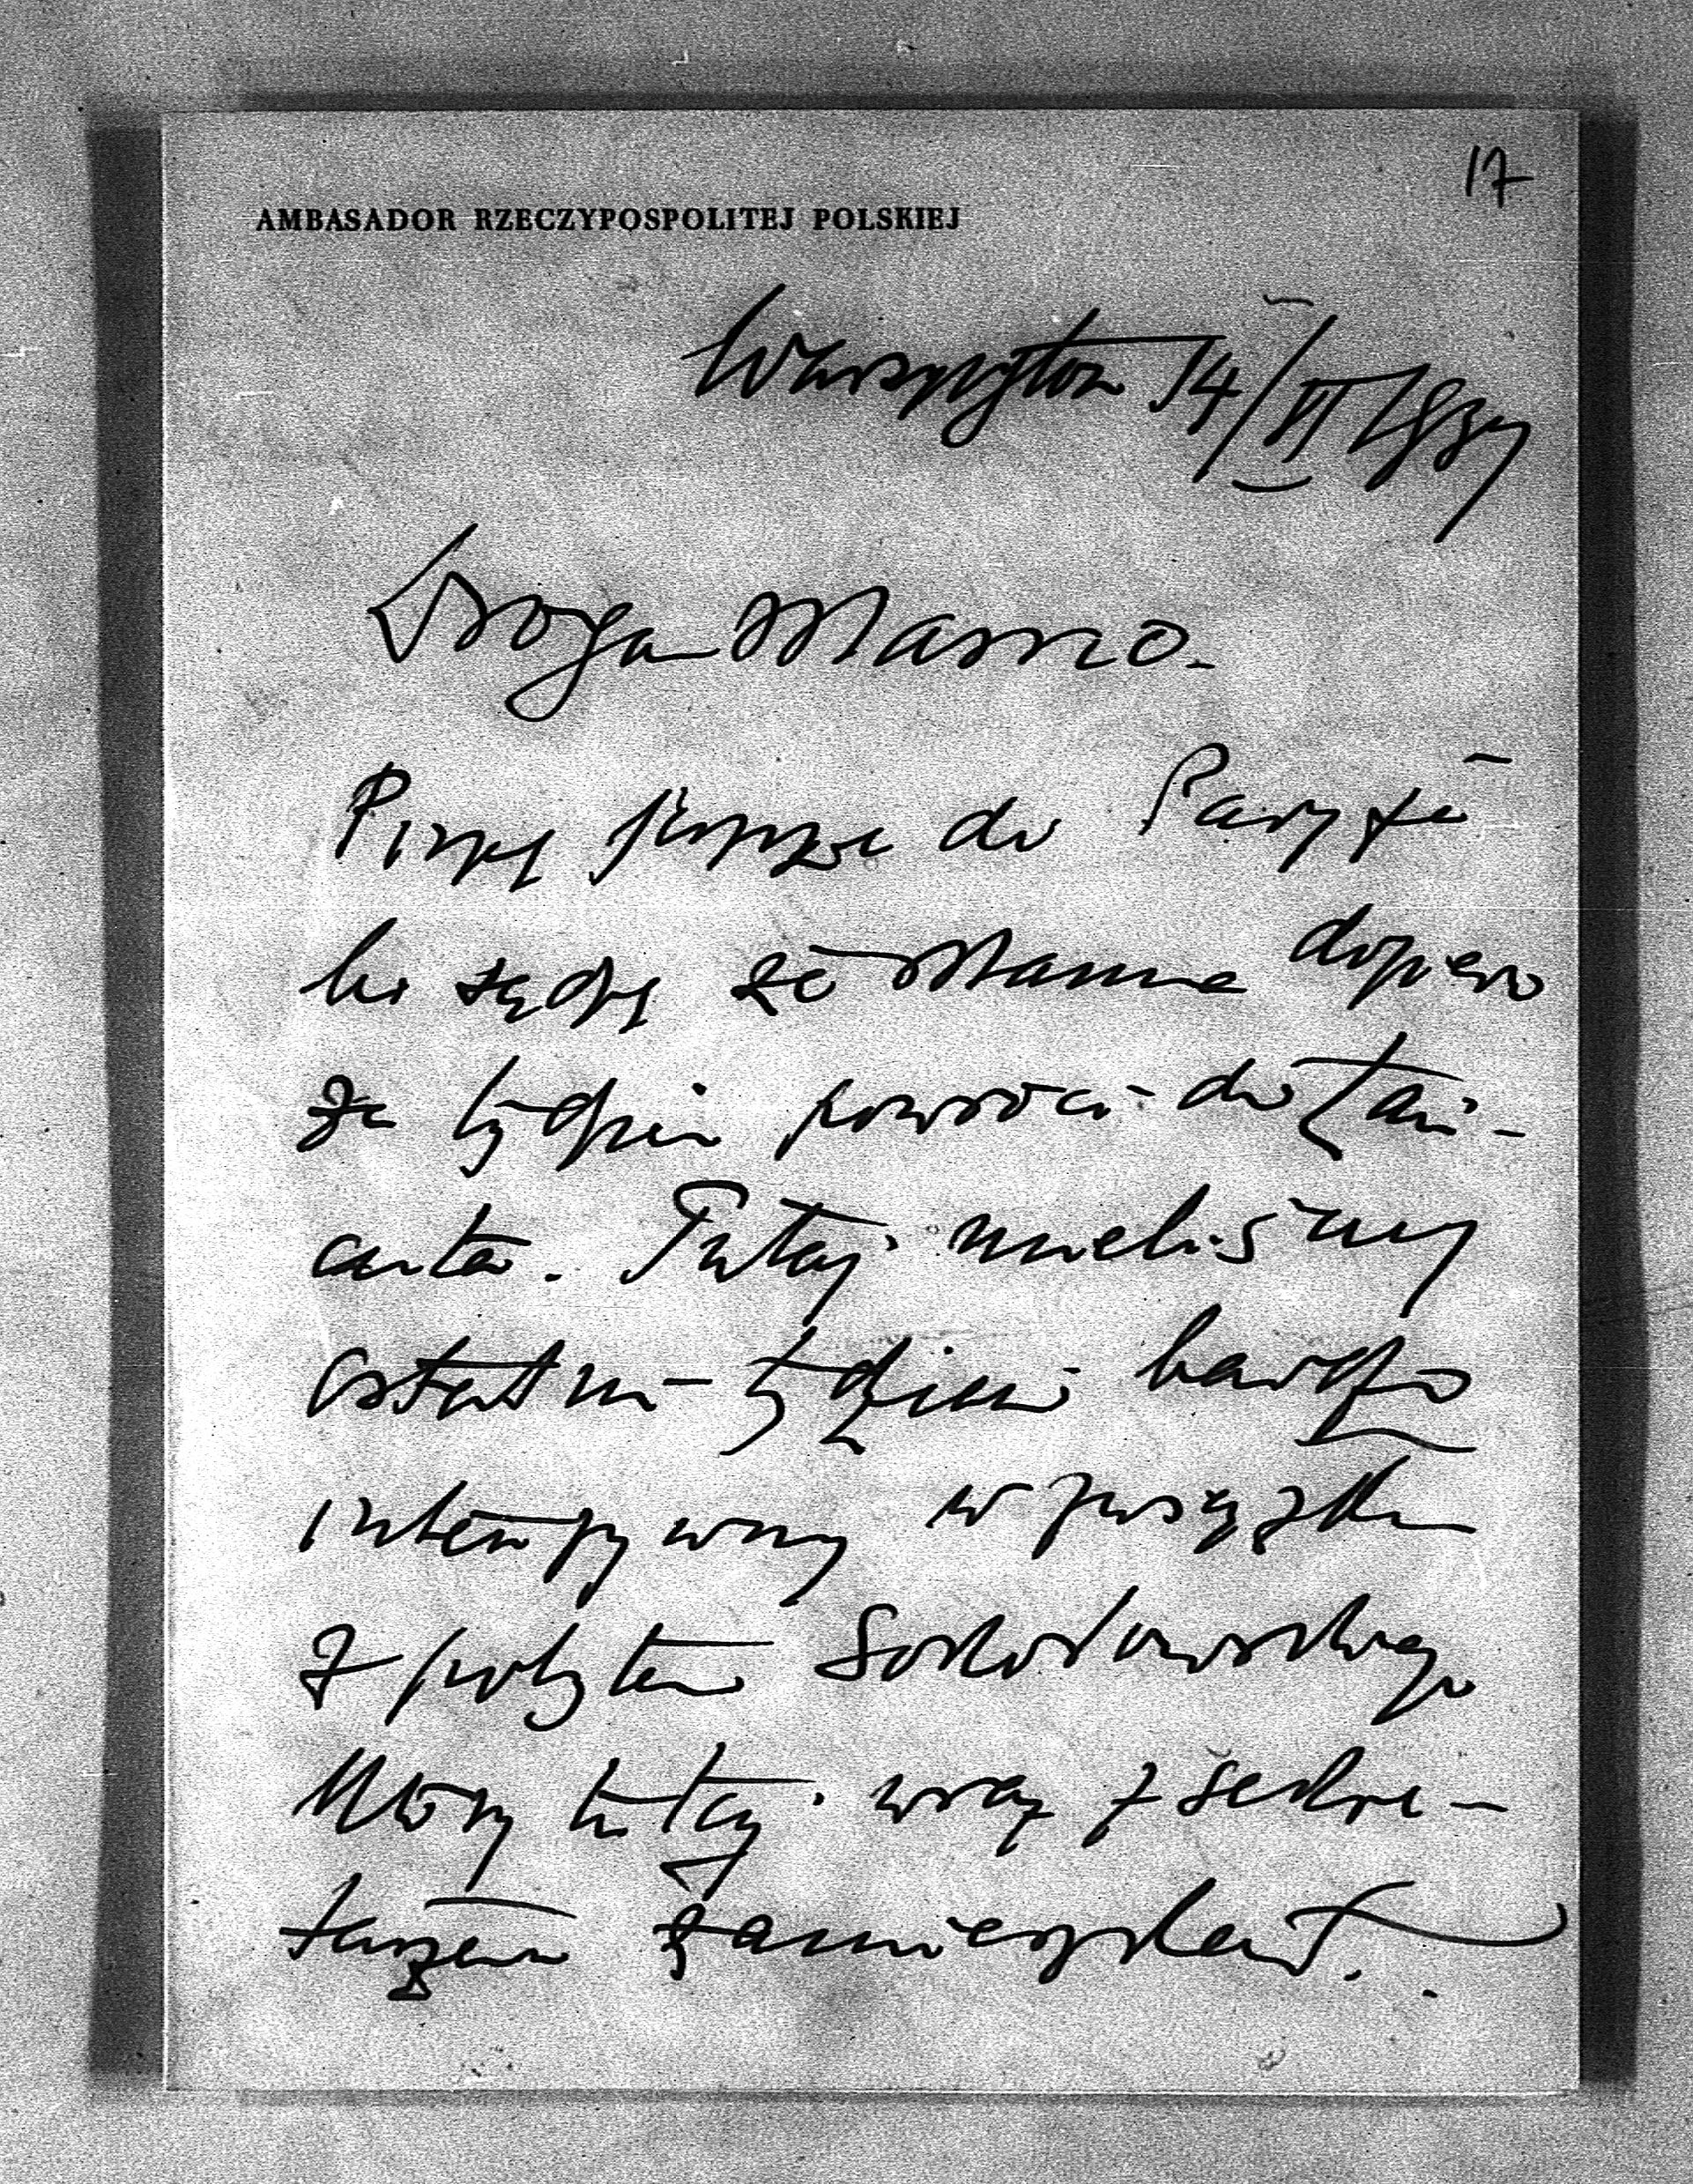 17
AMBASADOR RZECZYPOSPOLITEJ POLSKIEJ
Waszyngton 14/VI 1937
Droga Mamo.
Piszę jeszcze do Paryża
bo sądzę że Mama dopiero
za tydzień powróci do Łań-
cuta. Tutaj mieliśmy
ostatni tydzień bardzo
intensywny w związku
z pobytem Sokołowskiego
który tutaj wraz z sekre-
tarzem zamieszkał.